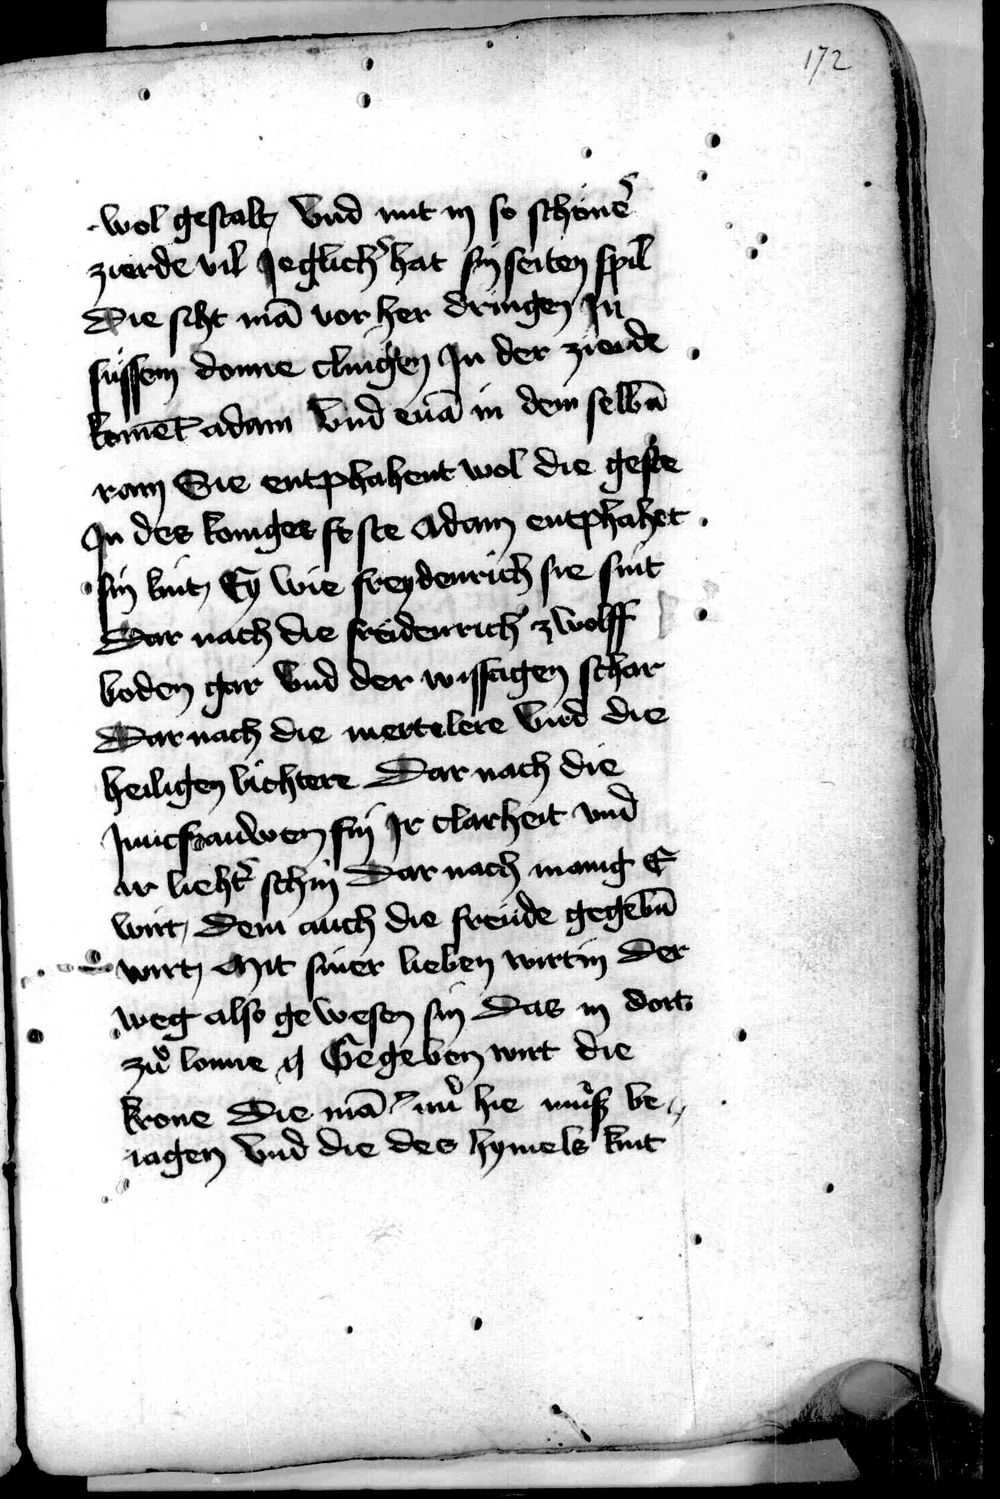 172
wol gestalt Vnd mit in so schöner
zierde vil Jeglicher hat sin seiten spil
Die siht mā vor her dringen Jn
süssem donne clingen Jn der zierde
koment adam Vnd euā in dem selbn̄
ram Sie entphahent wol die geste
Jn des koniges feste Adam entphahet
sin kint Ey wie freydenrich sie sint
Dar nach die freidenrich zwolff
boden gar Vnd der wissagen schar
Dar nach die mertelere Vnd die
heiligen bichtere Dar nach die
Juncfrauwen sin Jr clarheit vnd
ir liehter schin Dar nach manig E
wirt Dem auch die freude gegebn̄
wirt Mit siner lieben wirtin Der
weg also gewesen sin Das in dort
zů lone Gegeben wirt die
krone Die mā nů hie můsz be
iagen Vnd die des hymels kint